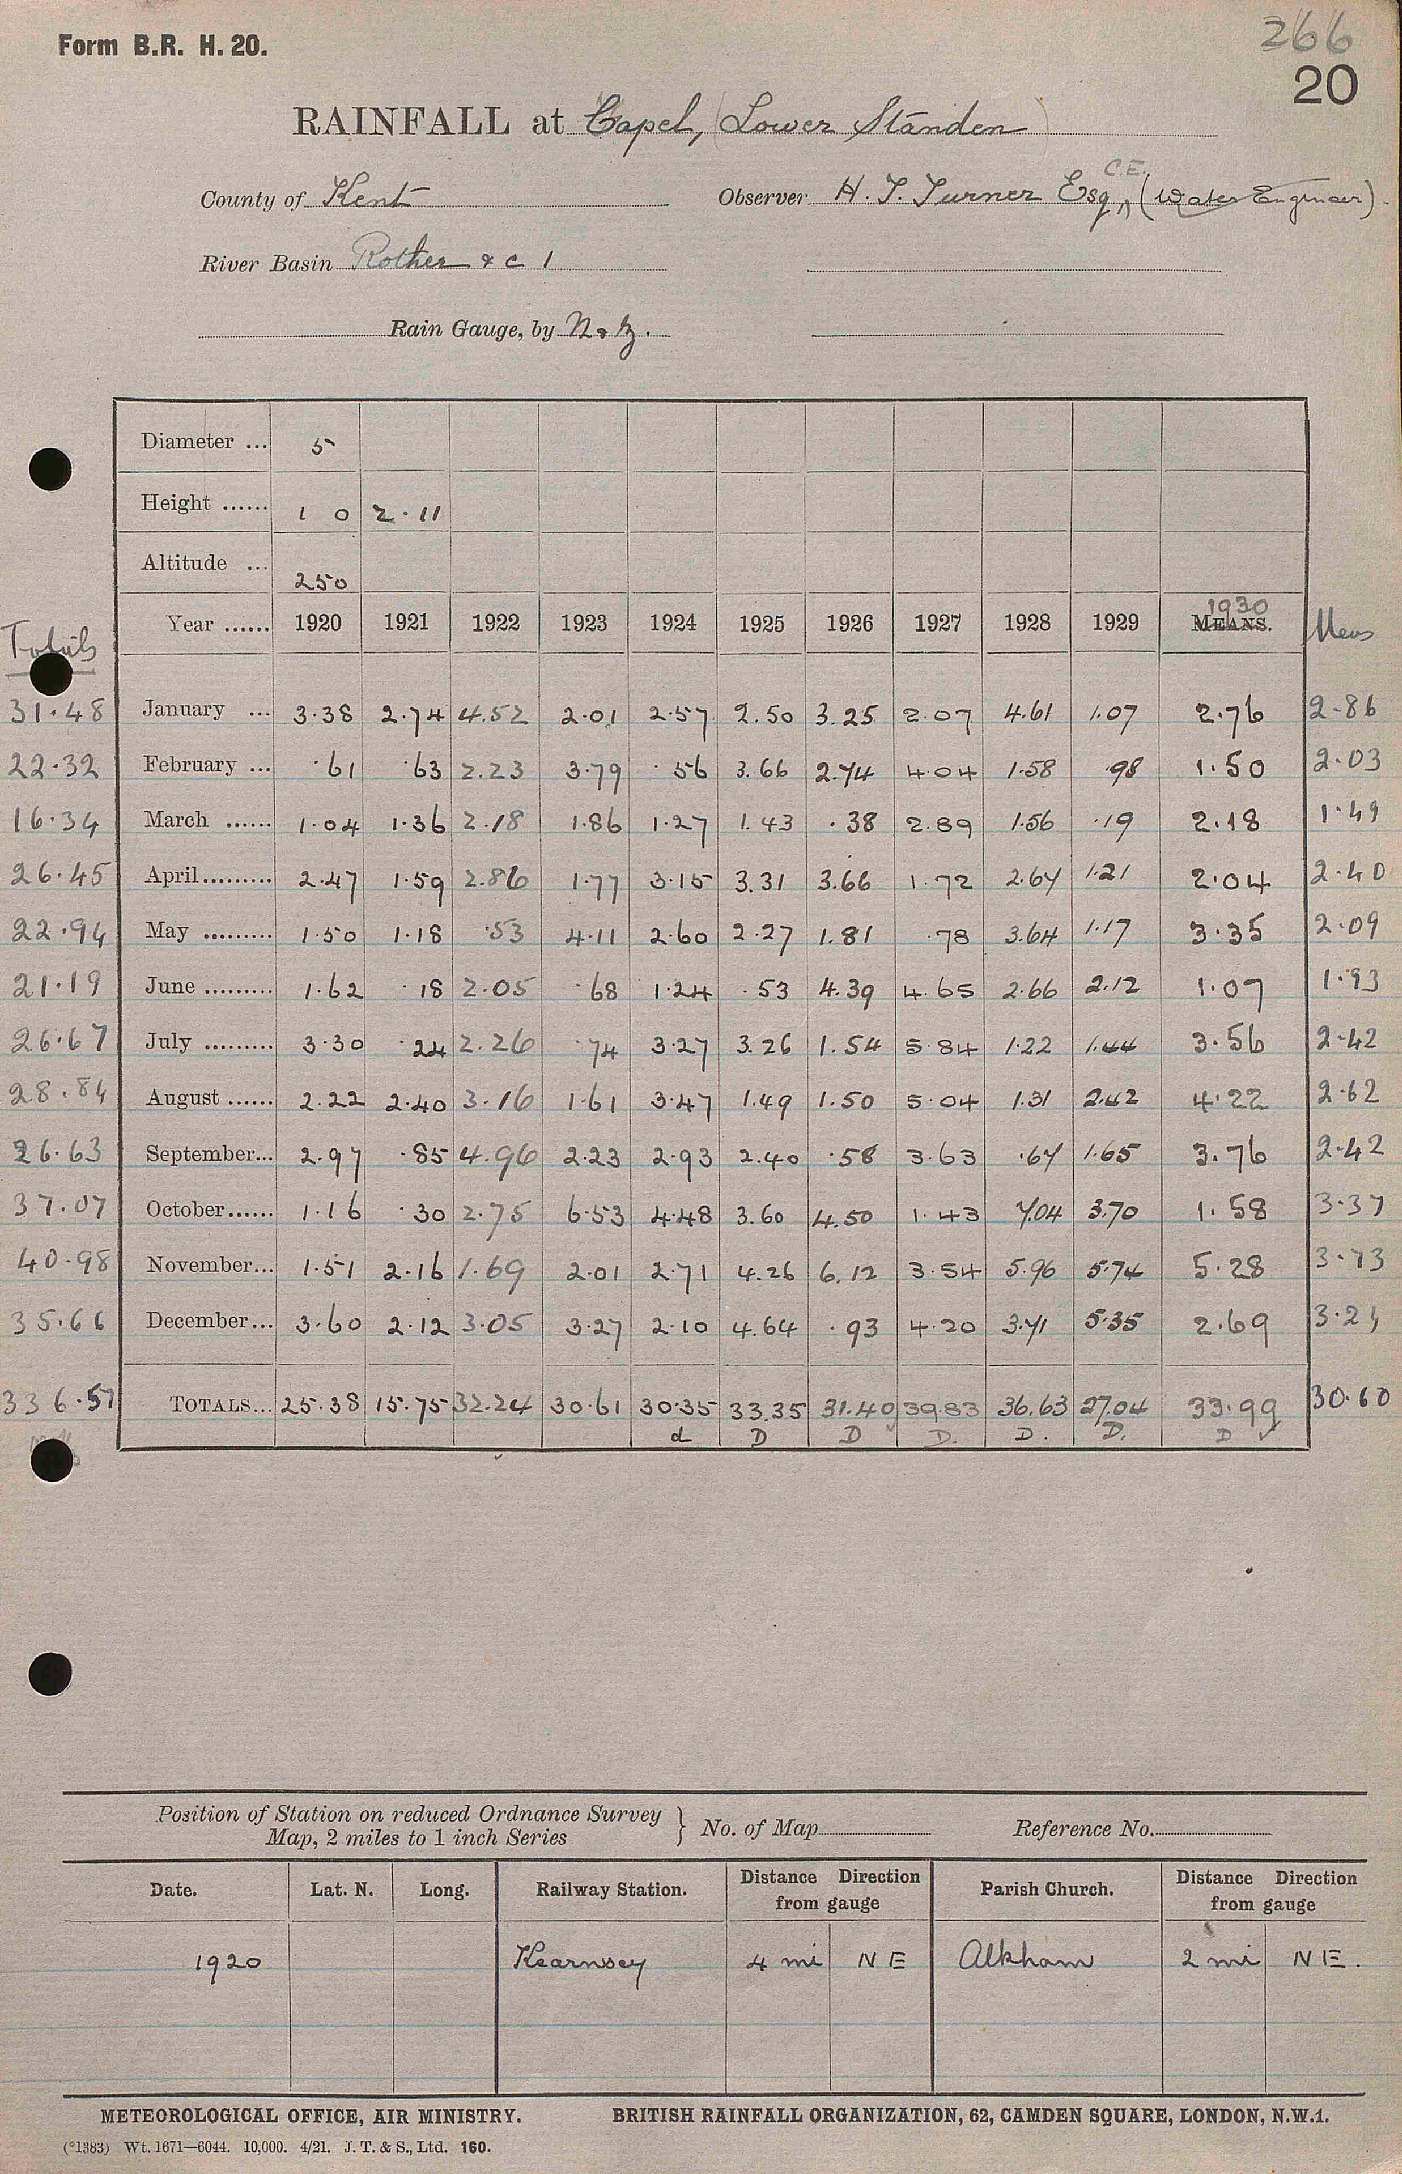 Form B.R. H. 20.
266
20
RAINFALL at Capel, (Lower Standen)
C.E.
County of Kent Observer H. T. Turner Esq (Water Engineer)
River Basin Rother & c 1
Rain Gauge, by N & Z.
Diameter ... 5
Height ...... 1 0 2·11
Altitude ... 250
1930
Totals Year ...... 1920 1921 1922 1923 1924 1925 1926 1927 1928 1929 MEANS. Mens
31·48 January ... 3·38 2·74 4.52 2·01 2·57 2.50 3.25 2·07 4.61 1.07 2·76 2·86
22·32 February ... ·61 ·63 2.23 3·79 ·56 3.66 2.74 4·04 1·58 ·98 1·50 2·03
16·34 March ...... 1·04 1·36 2·18 1·86 1·27 1.43 ·38 2·89 1·56 ·19 2·18 1·49
26·45 April......... 2·47 1·59 2·86 1·77 3·15 3.31 3.66 1·72 2·64 1·21 2·04 2·40
22·94 May ......... 1·50 1·18 ·53 4·11 2·60 2·27 1.81 ·78 3.64 1·17 3·35 2·09
21·19 June ......... 1·62 ·18 2·05 ·68 1·24 ·53 4.39 4.65 2·66 2.12 1·07 1·93
26·67 July ......... 3·30 ·24 2·26 ·74 3·27 3.26 1.54 5·84 1·22 1.44 3·56 2·42
28·84 August ...... 2·22 2·40 3·16 1·61 3·47 1.49 1.50 5·04 1·31 2.42 4·22 2·62
26·63 September... 2·97 ·85 4·96 2·23 2·93 2·40 ·58 3·63 ·64 1·65 3·76 2·42
37·07 October...... 1·16 ·30 2·75 6·53 4·48 3.60 4.50 1·43 7.04 3.70 1·58 3·37
40·98 November... 1·51 2·16 1·69 2·01 2·71 4·26 6.12 3·54 5.96 5·74 5·28 3·73
35·66 December... 3·60 2·12 3·05 3·27 2·10 4.64 ·93 4·20 3·41 5·35 2·69 3·24
336·57 TOTALS... 25·38 15·75 32·24 30·61 30·35 33.35 31.40 39.83 36.63 27.04 33·99 30·60
d D D D. D. D. D
Position of Station on reduced Ordnance Survey
Map, 2 miles to 1 inch Series } No. of Map Reference No.
Date. Lat. N. Long. Railway Station. Distance Direction from gauge Parish Church. Distance Direction from gauge
1920 Kearnsey 4 mi NE Alkham 2 mi NE.
METEOROLOGICAL OFFICE, AIR MINISTRY. BRITISH RAINFALL ORGANIZATION, 62, CAMDEN SQUARE, LONDON, N.W.1.
(°1383) Wt. 1671—6044. 10,000. 4/21. J. T. & S., Ltd. 160.